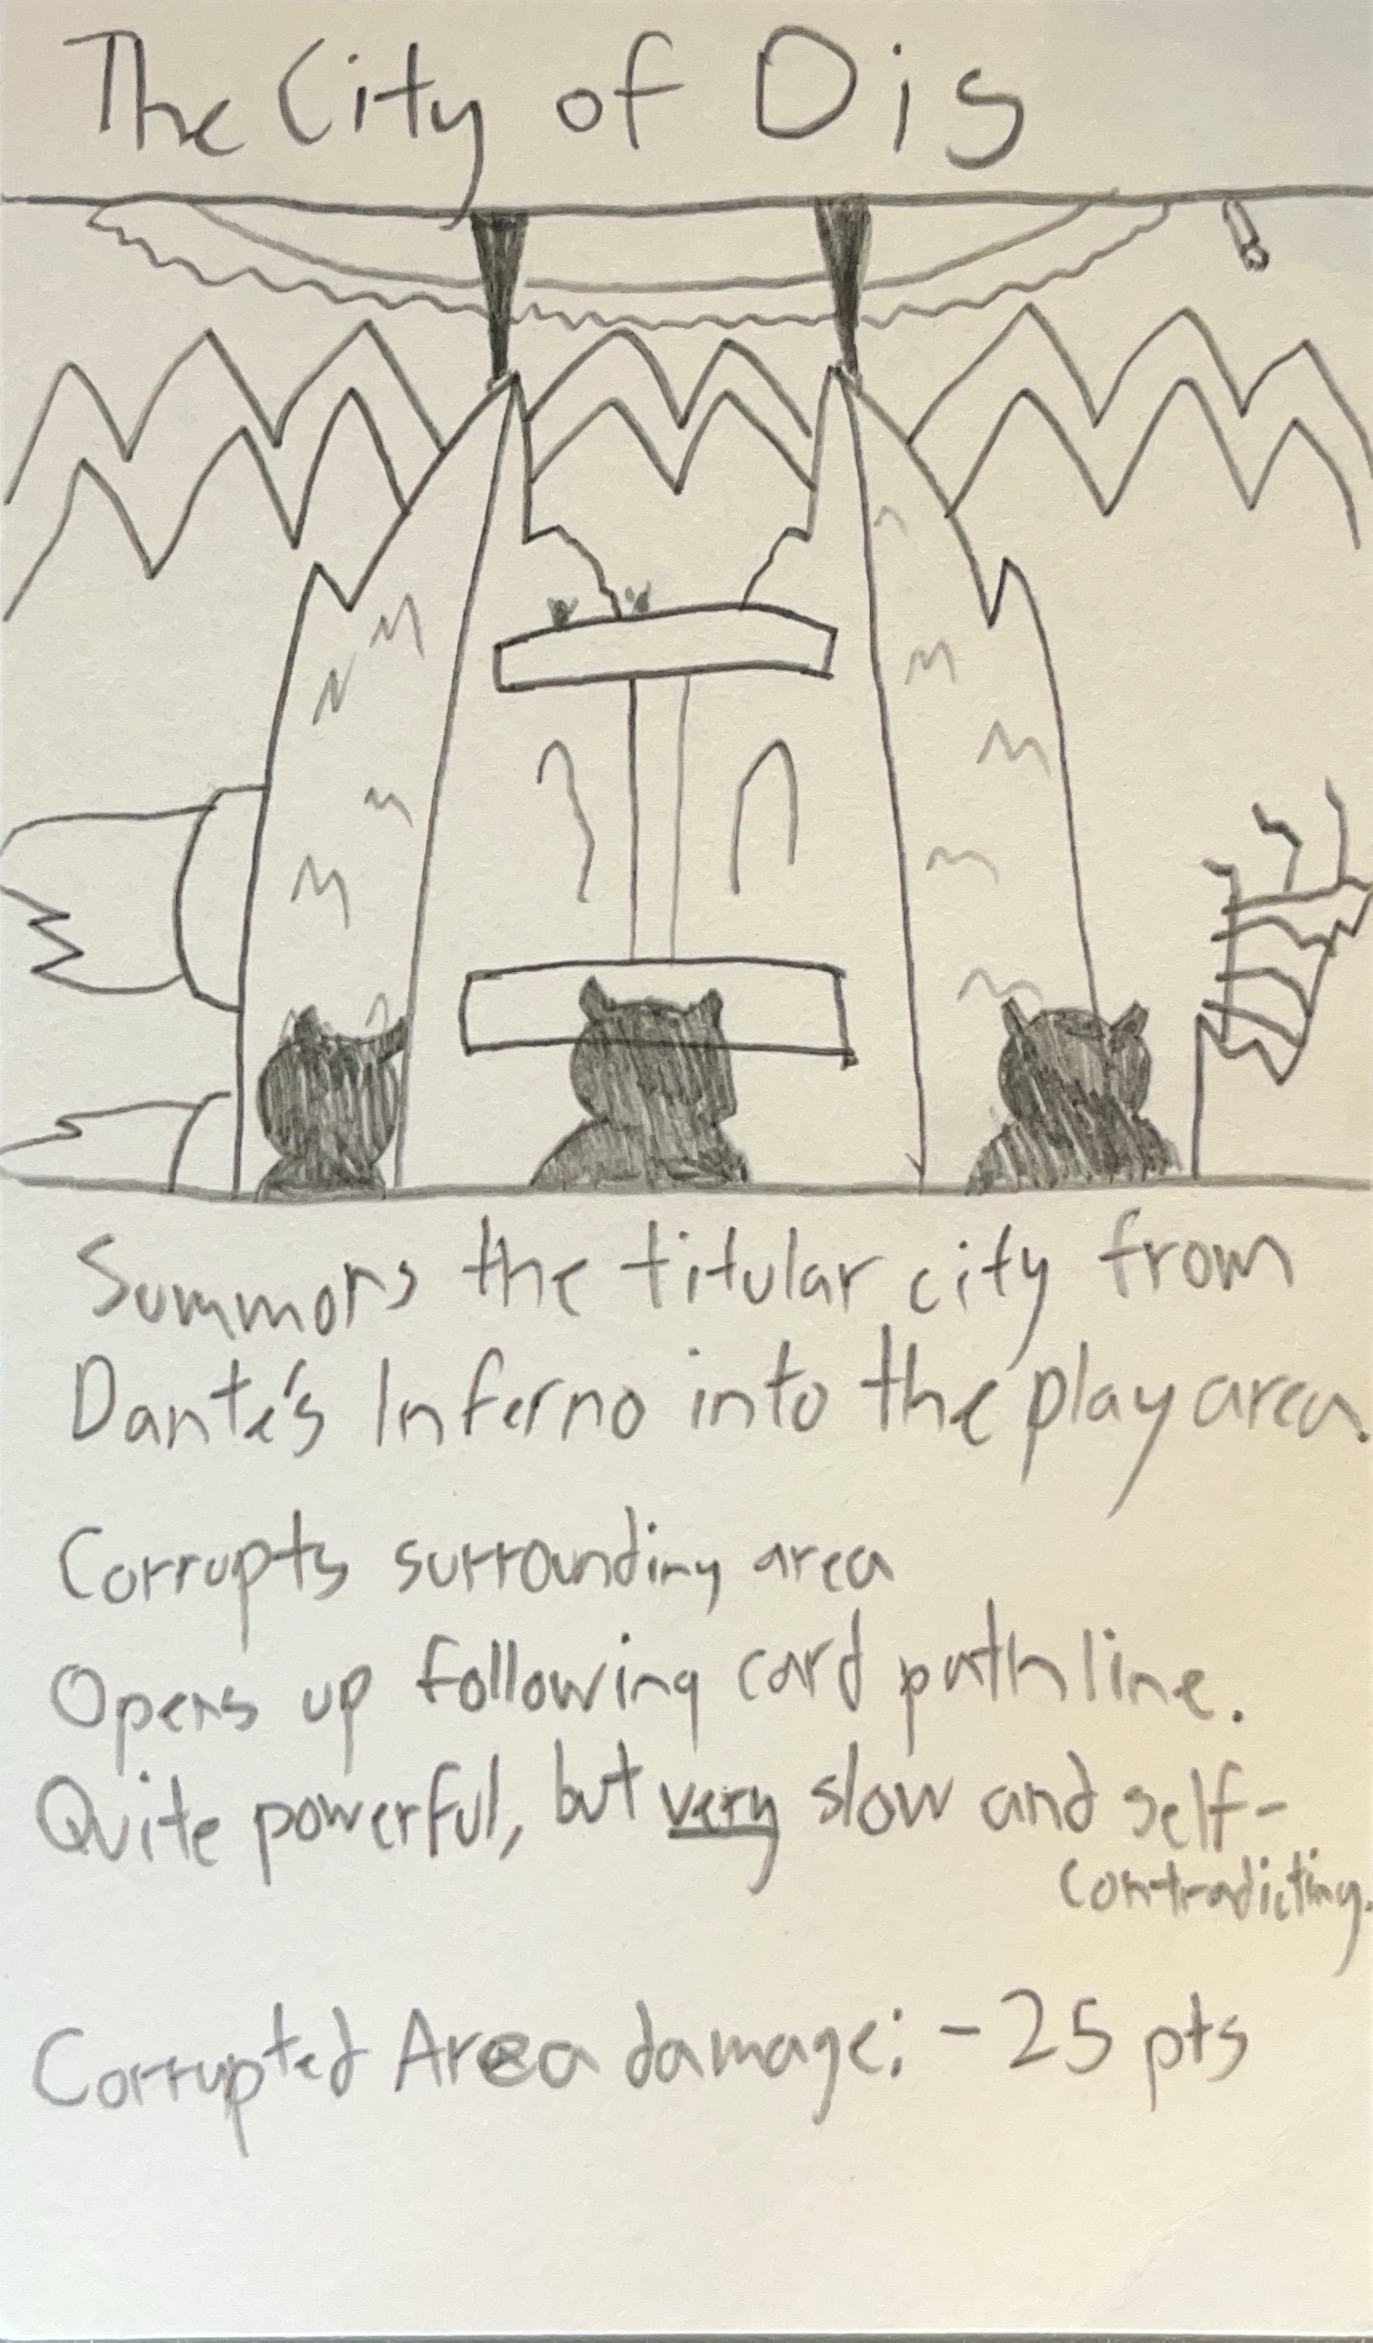 The City of Dis
Summons the titular city from
Dante's Inferno into the play area.
Corrupts surrounding area
Opens up following card path line.
Quite powerful, but very slow and self-
contradicting.
Corrupted Area damage: -25 pts